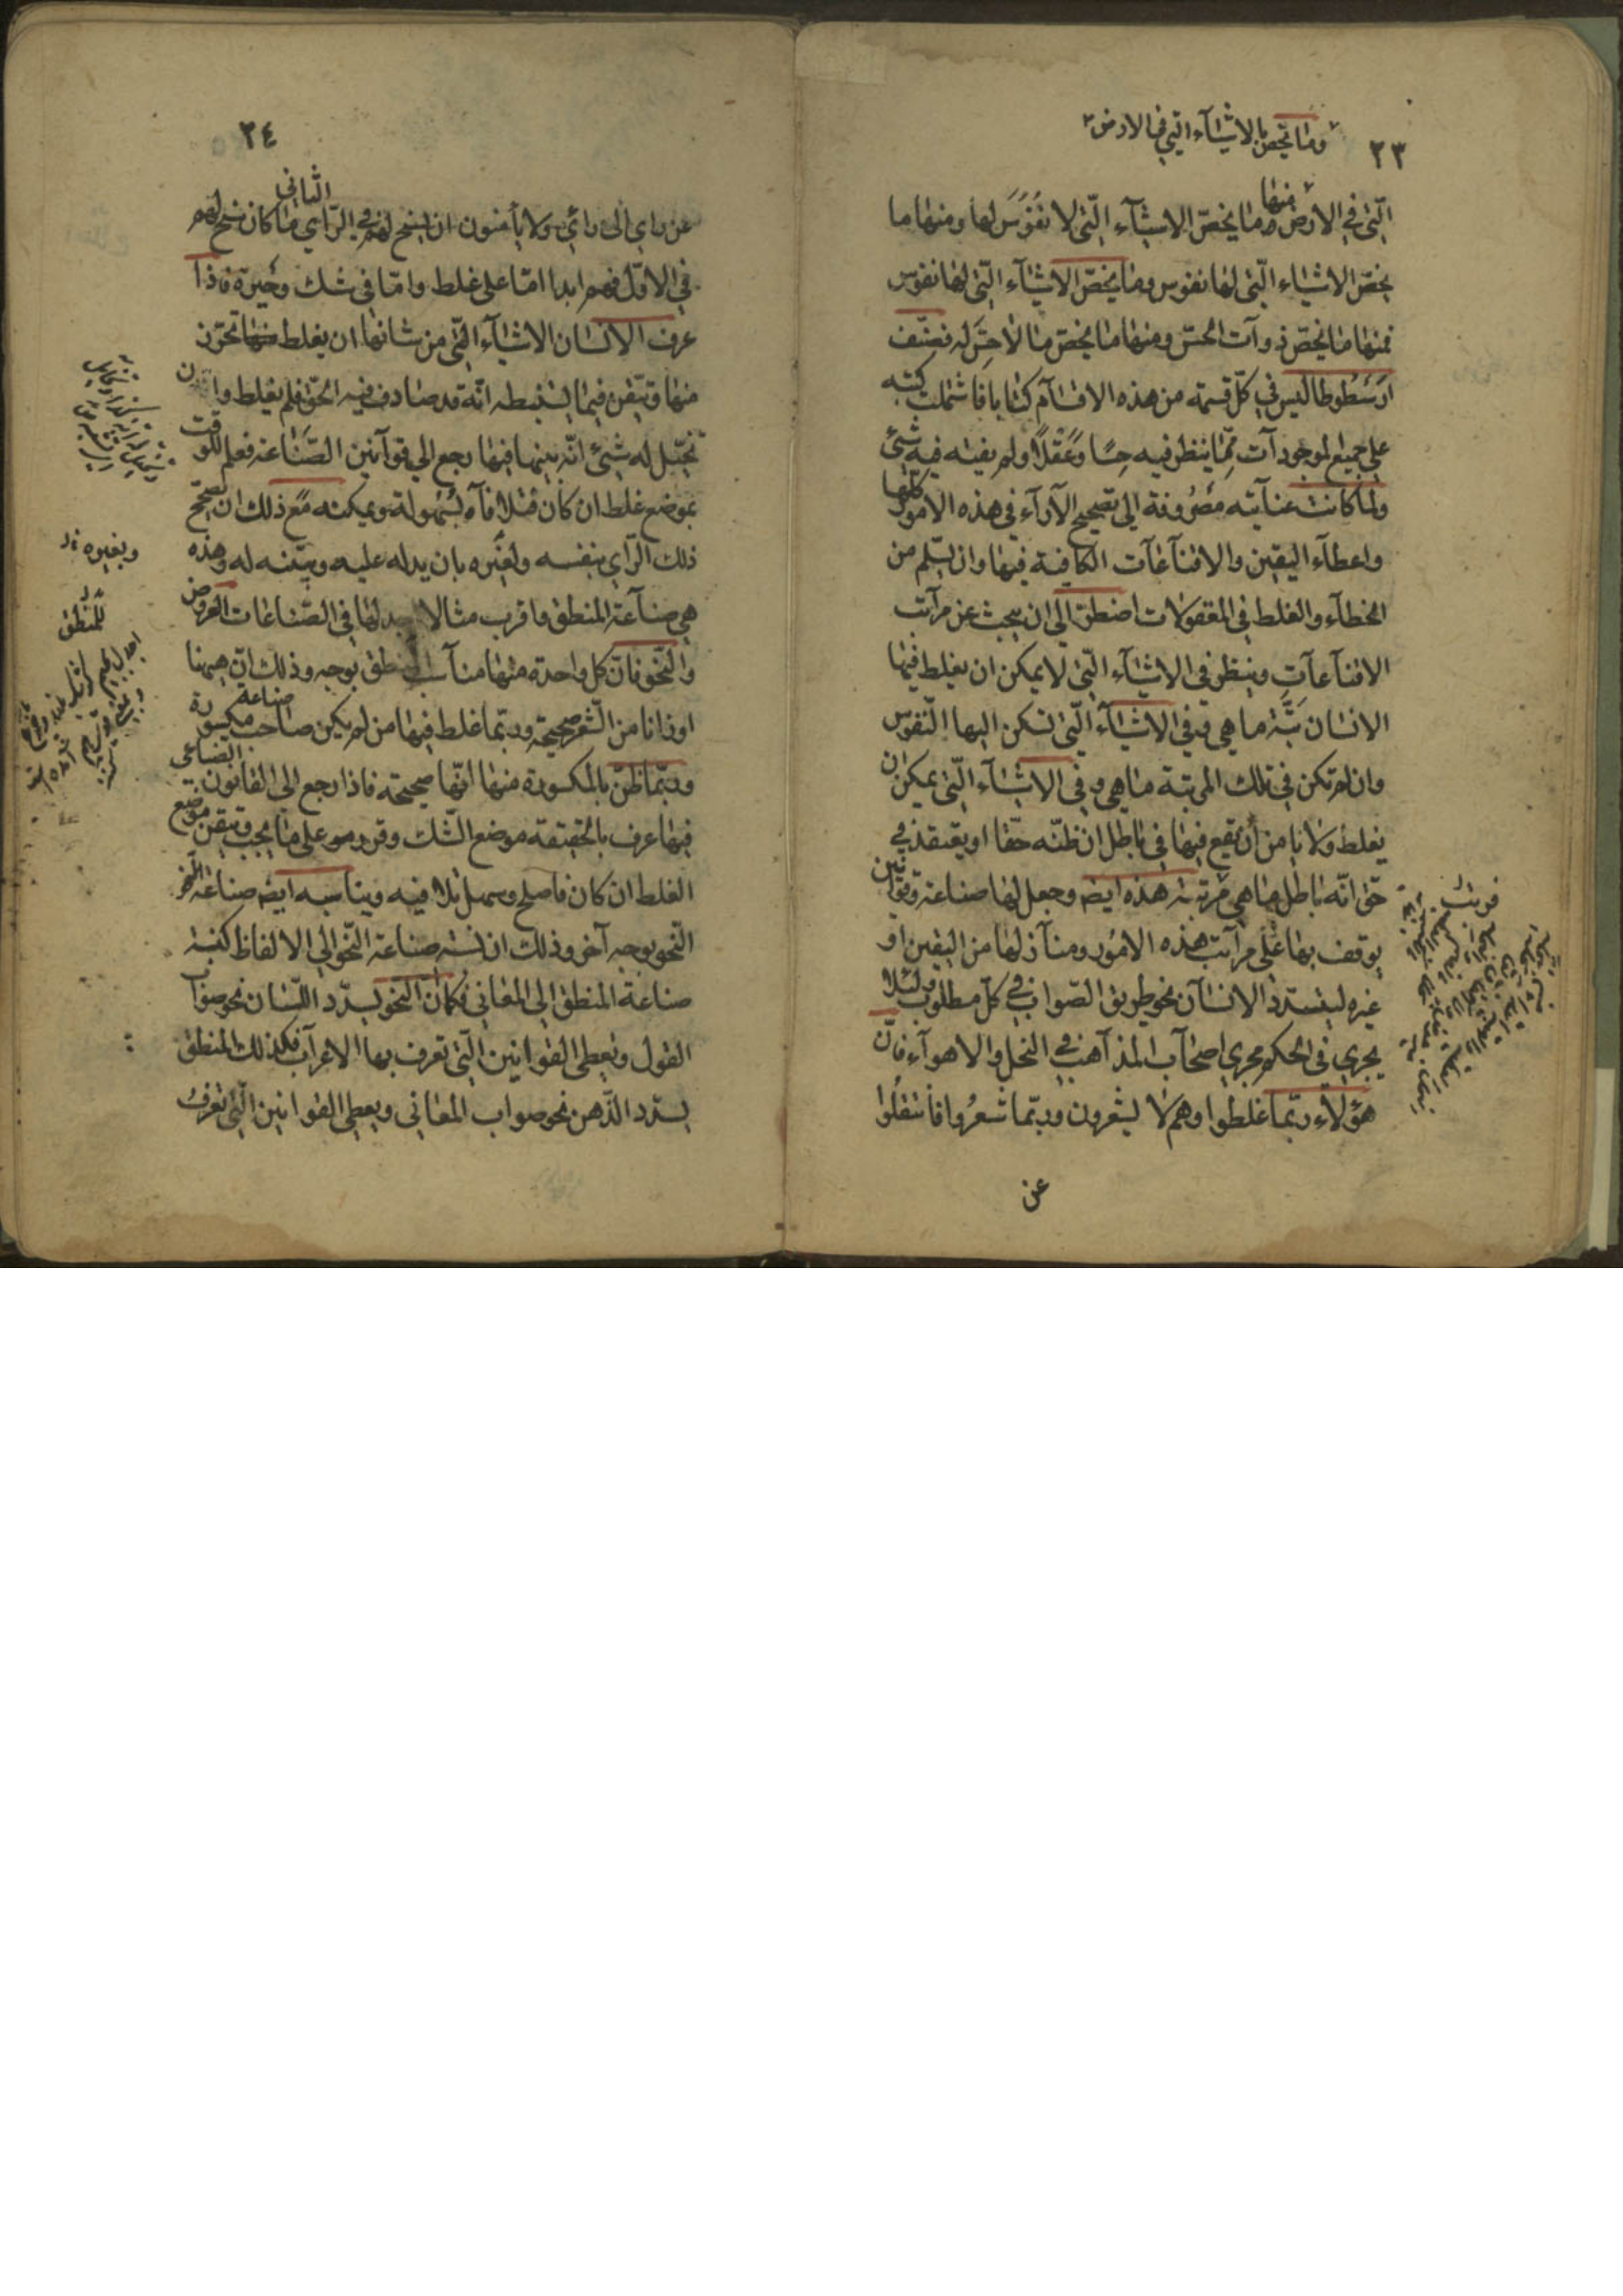 وما يخص بالاشيآء التي في الارض
٢٣
منها
التى في الارض وما يخصّ الاشيآء الّتى لا نفوس لها ومنها ما
يخصّ الاشيآء الّتى لها نفوس وما يخصّ الاشيآء الّتى لها نفوس
فمنها ما يخصّ ذوآت الحسّ ومنها ما يخصّ ما لا حسّ له فصنّف
ارسطوطاليس في كلّ قسمة من هذه الاقسآم كتابا فاشتملت كتبه
على جميع الموجودآت ممّا ينظر فيه حسّا وعقلا ولم يفته فيه شئ
ولما كانت عنآيته مصروفة الى تصحيح الآرآء في هذه الامور كلّها
واعطآء اليقين والاقنآعآت الكافية فيها وان يسلم من
الخطآء والغلط في المعقولات اضطرّ الى ان يبحث عن مرآتب
الاقنآعآت وينظر في الاشيآء الّتى لا يمكن ان يغلط فيها
الانسان بتّة ما هي وفي الاشيآء الّتى تسكن اليها النّفوس
وان لم تكن في تلك المرتبة ما هي وفي الاشيآء الّتى يمكن ان
يغلط ولا يا من أن يقع فيها في باطل ان ظنّه حقّا او يعتقد في
حق انّه باطل ما هي مرتبة هذه ايضا وجعل لها صناعة وقوآنين
يوقف بها على مرآتب هذه الامور ومنآزلها من اليقين او
غيره ليتسدد الانسآن نحو طريق الصّواب في كلّ مطلوب لئلا
يجري في الحكم مجري اصحآب المذآهب في النحل والاهوآء فانّ
هؤلاء ربّما غلطوا وهم لا يشعرون وربّما شعروا فانتقلوا
عن
٢٤
الثاني
عن راي الى رائ ولا يأمنون ان يسنح لهم في الرّاي ما كان سنح لهم
في الاوّل فهم ابدا امّا على غلط وامّا في شك وحيرة فاذا
عرف الانسان الاشيآء الّتى من شانها ان يغلط فيها تحرّز
منها وتيقن فيما يستنبطه انّه قد صادف فيه الحق فلم يغلط وان
تخيّل له شئ انّه فيها رجع الى قوآنين الصّناعة فعلم للوقت
بموضع غلط ان كان قبلا فآه بسهولة ويمكنه مع ذلك ان يصحّح
ذلك الرّاي بنفسه ولغيره بان يدله عليه ويبيّنه له وهذه
هي صنآعة المنطق واقرب مثالا يجد لها في الصّناعات العروض
والنّحو فانّ كل واحدة منها منآسب المنطق بوجه وذلك انّ هيهنا
اوزانا من الشّعر صحيحة وربّما غلط فيها من لم يكن صاحب صناعة مكسورة
وربّما ظنّ بالمكسورة منها انّها صحيحة فاذا رجع الى القانون الصّناعى
فيها عرف بالحقيقة موضع الشّك وقدر هو على ما يجب وتيقن موضع
الغلط ان كان فاصلح وسهل تلافيه ويناسبه ايضا صناعة
النّحو بوجه آخر وذلك ان نسبة صناعة النّحو الي الالفاظ كنسبة
صناعة المنطق الى المعاني فكما انّ النّحو يسدّد اللّسان نحو صواب
القول ويعطى القوانين الّتى تعرف بها الاعرآب فكذلك المنطق
يسدّد الذّهن نحو صواب المعانى ويعطى القوانين الّتى تعرف
وبغيره
للمنطق